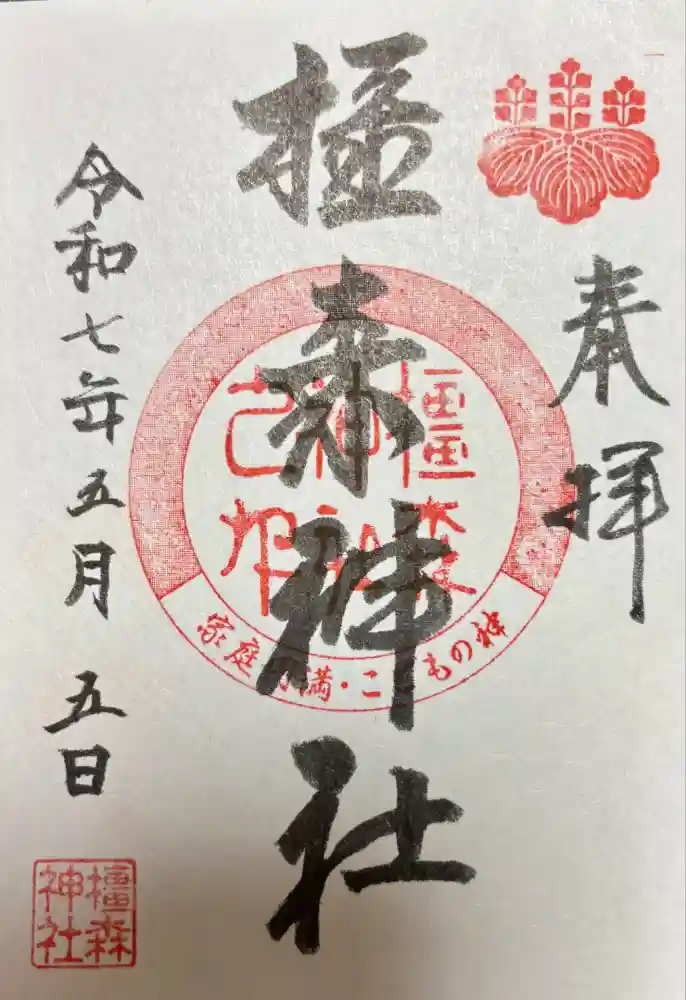 奉拝
橿森神社
橿森
神社
之印
家庭円満・こどもの神
令和七年五月五日
橿森
神社